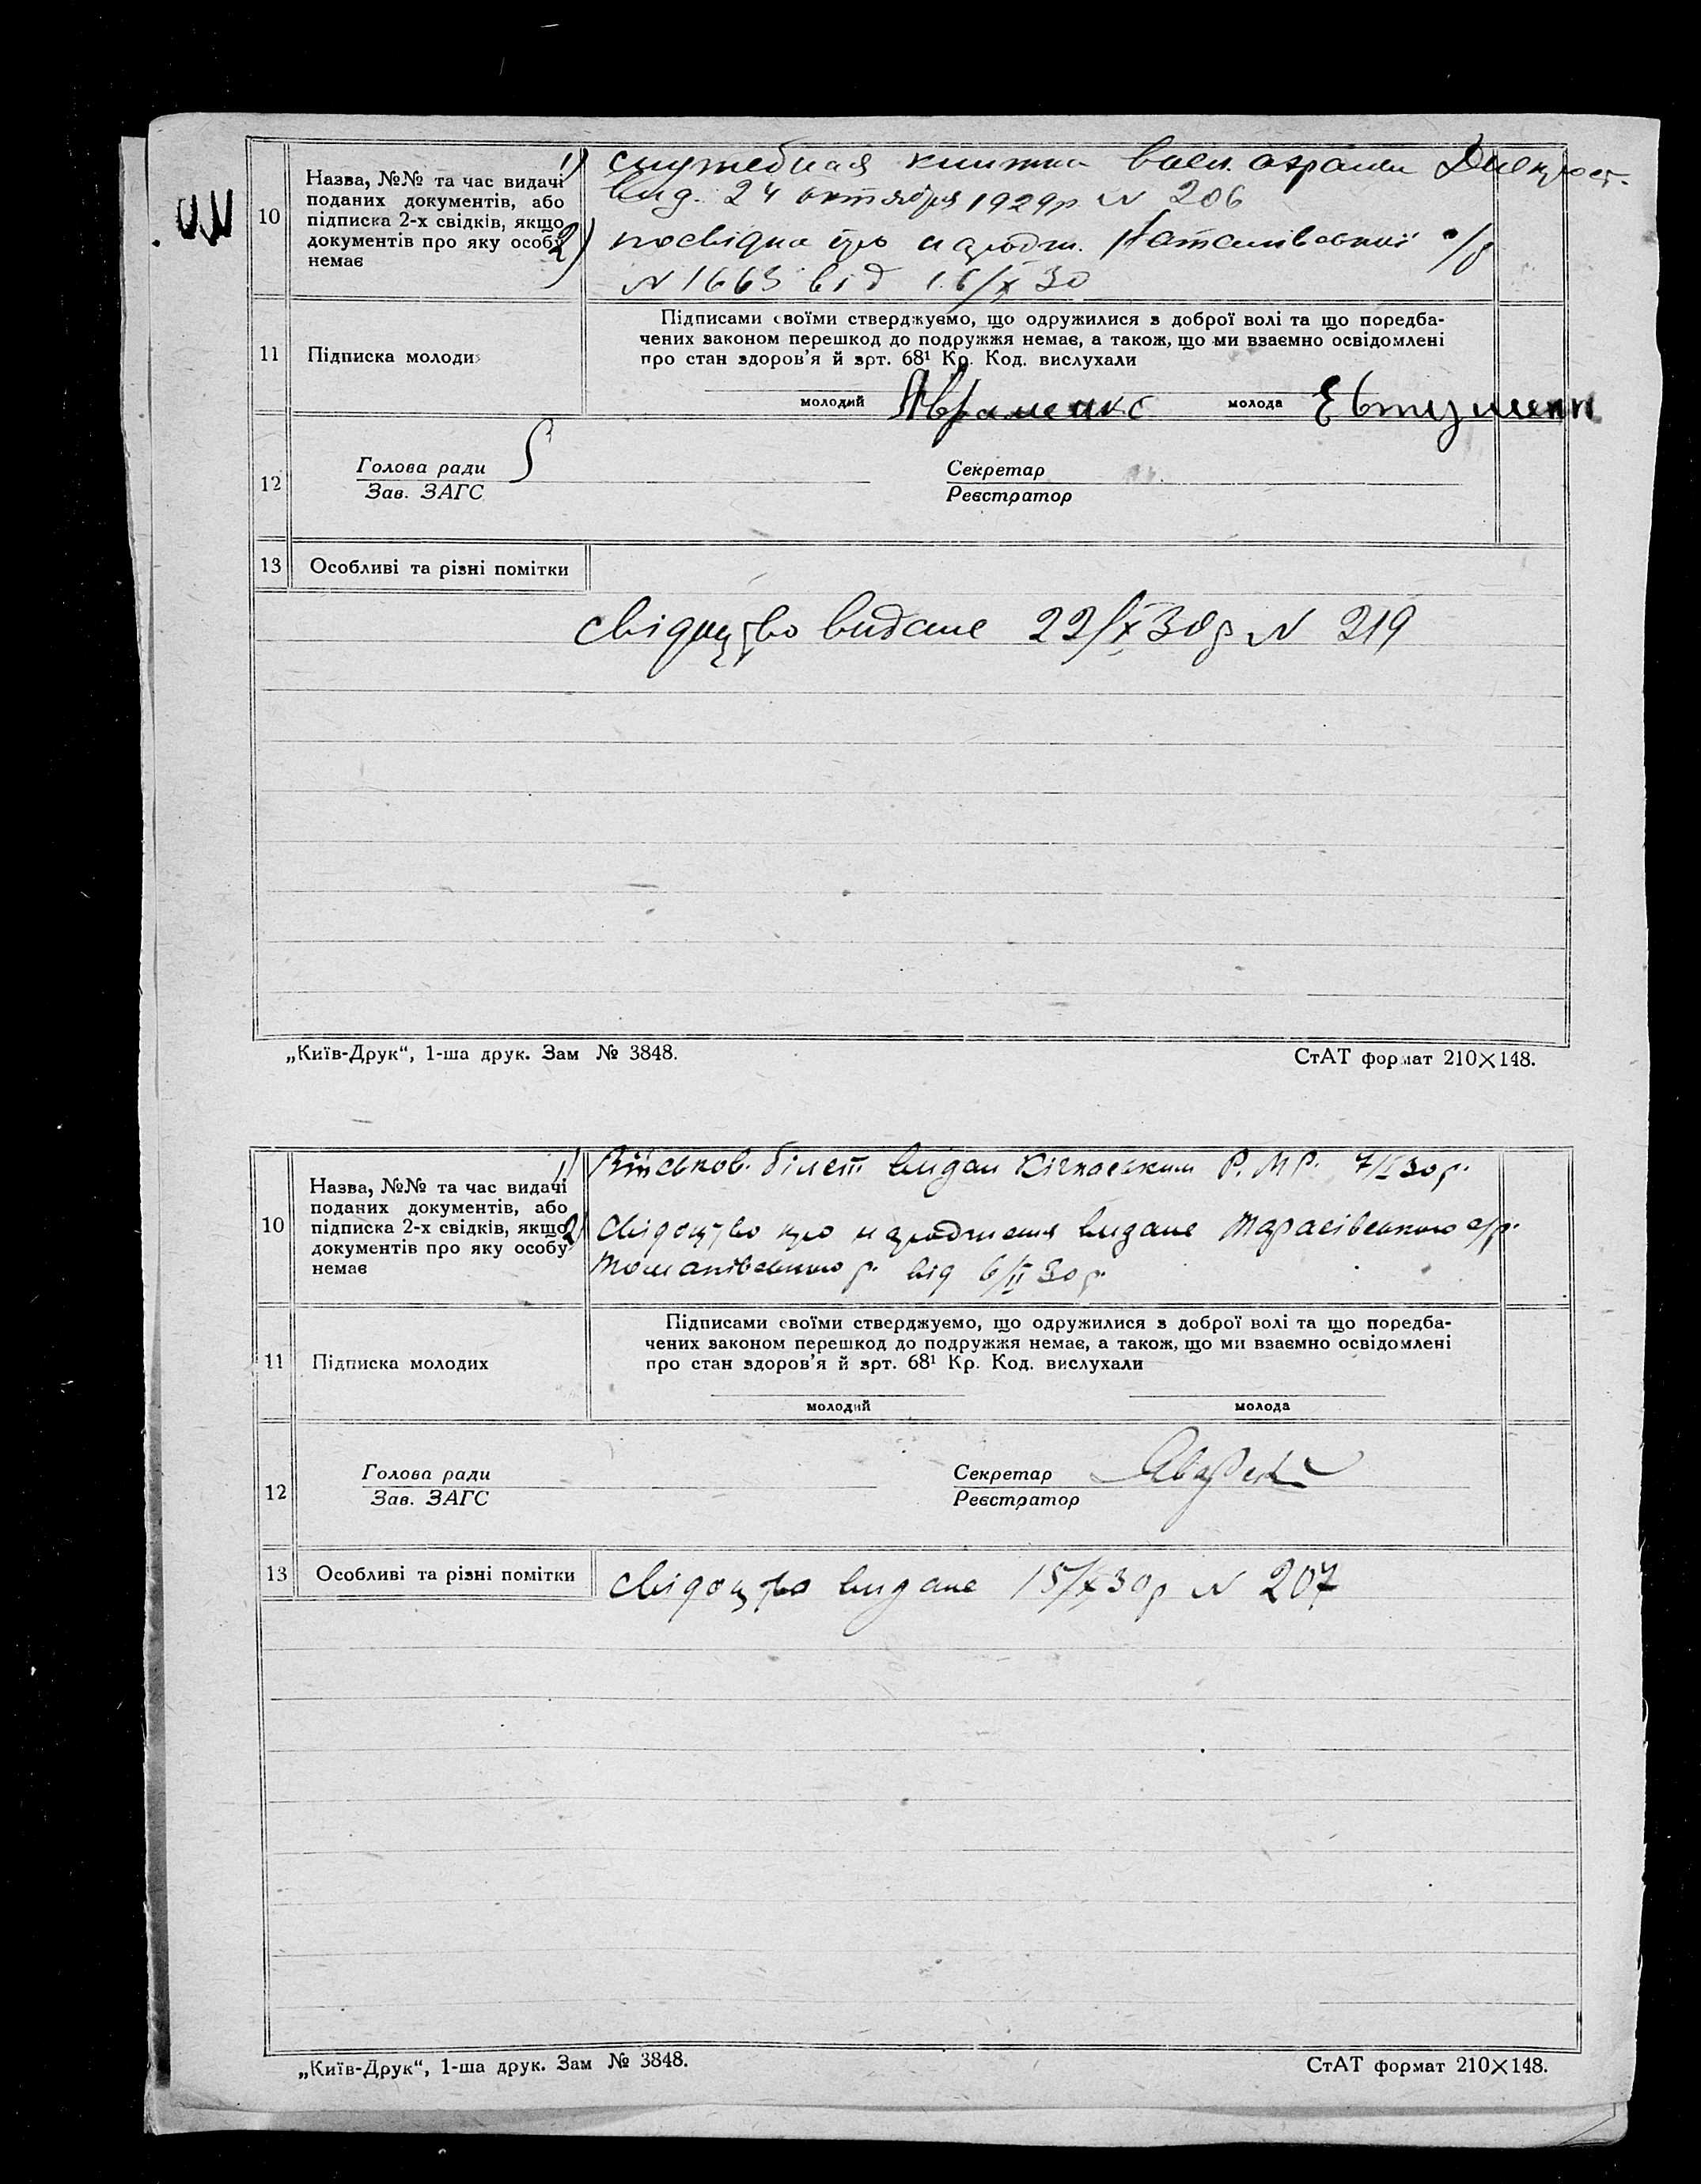 10
Назва, №№ та час видачі
поданих документів, або
підписка 2-х свідків, якщо
документів про яку особу
немає
1) служебная книжка воен. охраны Днепрост.
вид. 24 октября 1929 р. N 206
2) посвідка про народж. Наталівської с/р
N 1663 від 16/X 30
11
Підписка молоди
Підписами своїми стверджуємо, що одружилися з доброї волі та що поредба-
чених законом перешкод до подружжя немає, а також, що ми взаємно освідомлені
про стан здоров'я й арт. 68¹ Кр. Код. вислухали
молодий Авраменко молода Евтушенк
12
Голова ради
Зав. ЗАГС
Секретар
Реєстратор
13
Особливі та різні помітки
свідоцтво видане 22/X 30 р N 219
„Київ-Друк“, 1-ша друк. Зам № 3848.
СтАТ формат 210×148.
10
Назва, №№ та час видачі
поданих документів, або
підписка 2-х свідків, якщо
документів про яку особу
немає
1) Військов. білет видан Кічкаським Р. М Р. 7/ 30 р.
2) свідоцтво про народження видане Тарасівською с/р.
Томаківського р. від 6/II 30 р.
11
Підписка молодих
Підписами своїми стверджуємо, що одружилися з доброї волі та що поредба-
чених законом перешкод до подружжя немає, а також, що ми взаємно освідомлені
про стан здоров'я й арт. 68¹ Кр. Код. вислухали
молодий
молода
12
Голова ради
Зав. ЗАГС
Секретар
Реєстратор
13
Особливі та різні помітки
свідоцтво видане 15/X 30 р N 207
„Київ-Друк“, 1-ша друк. Зам № 3848.
СтАТ формат 210×148.